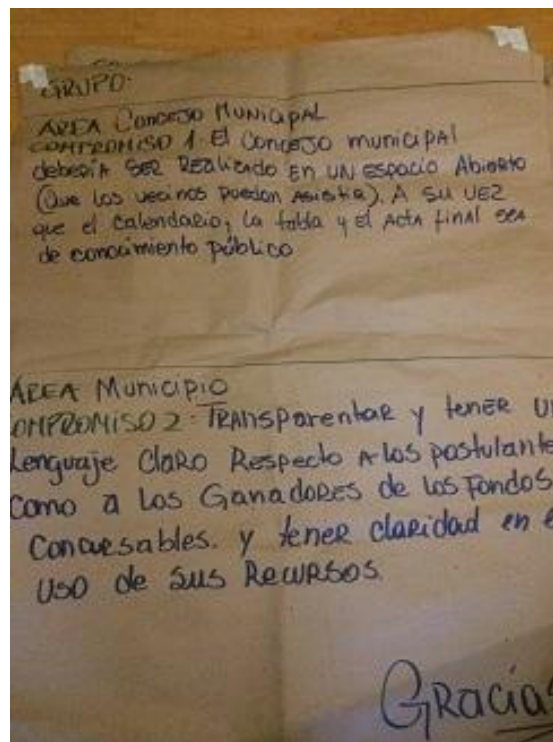 GRUPO:
AREA Concejo Municipal
COMPROMISO 1. El Concejo municipal
debería ser realizado en un espacio Abierto
(Que los vecinos puedan Asistir). A su vez
que el calendario, la tabla y el Acta final sea
de conocimiento público
AREA Municipio
OMPROMISO 2: Transparentar y tener U
Lenguaje Claro Respecto A los postulante
Como a Los Ganadores de los Fondos
Concursables. y tener claridad en e
Uso de sus Recursos.
Gracias